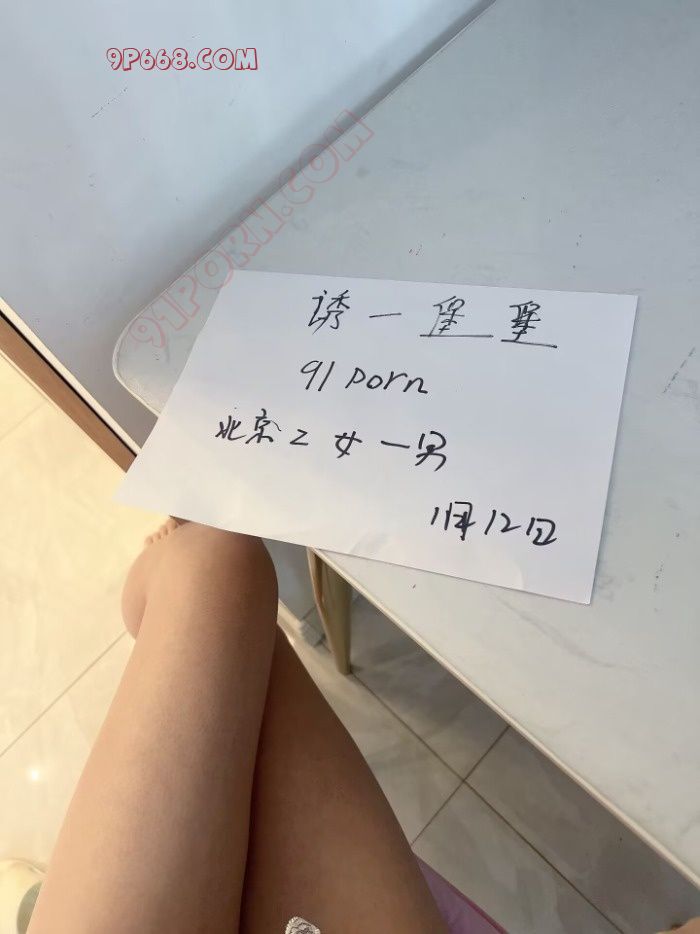 9P668.COM
91PORN.COM
诱一堡垒
91 porn
北京2女一男
1月12日